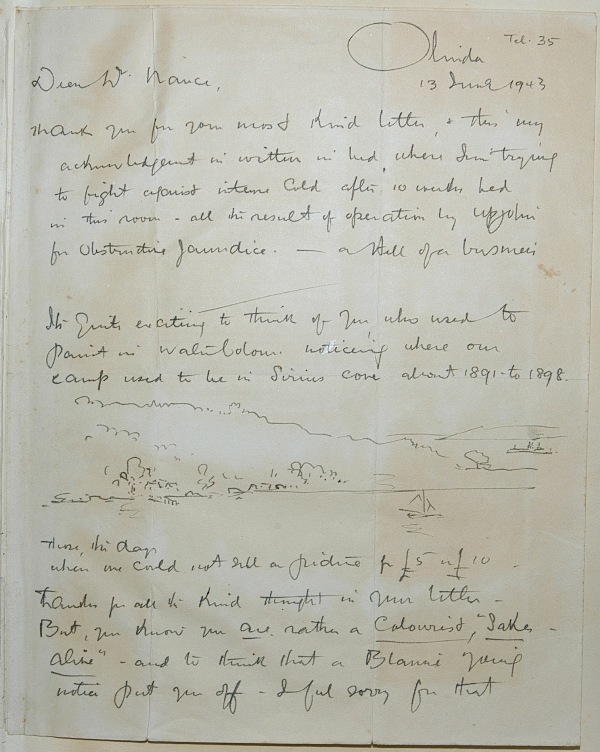 Tel. 35
Olinda
13 June 1943
Dear Mr. Nance,
Thank you for your most kind letter, & this my
acknowledgement is written in bed, where I'm trying
to fight against intense cold after 10 weeks bed
in this room - all the result of operation by Upjohn
for Obstructive Jaundice. — a Hell of a business
Its quite exciting to think of you, who used to
paint in watercolour noticing where our
camp used to be in Sirius cove about 1891 to 1898.
Those, the days
when one could not sell a picture for £5 or £10 -
Thanks for all the kind thought in your letter -
But, you know you are rather a Colourist, "Sakes -
Alive" - and to think that a
notice put you off - I feel sorry for that